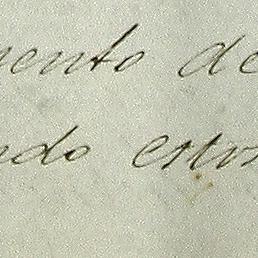 mento de
ndo estos